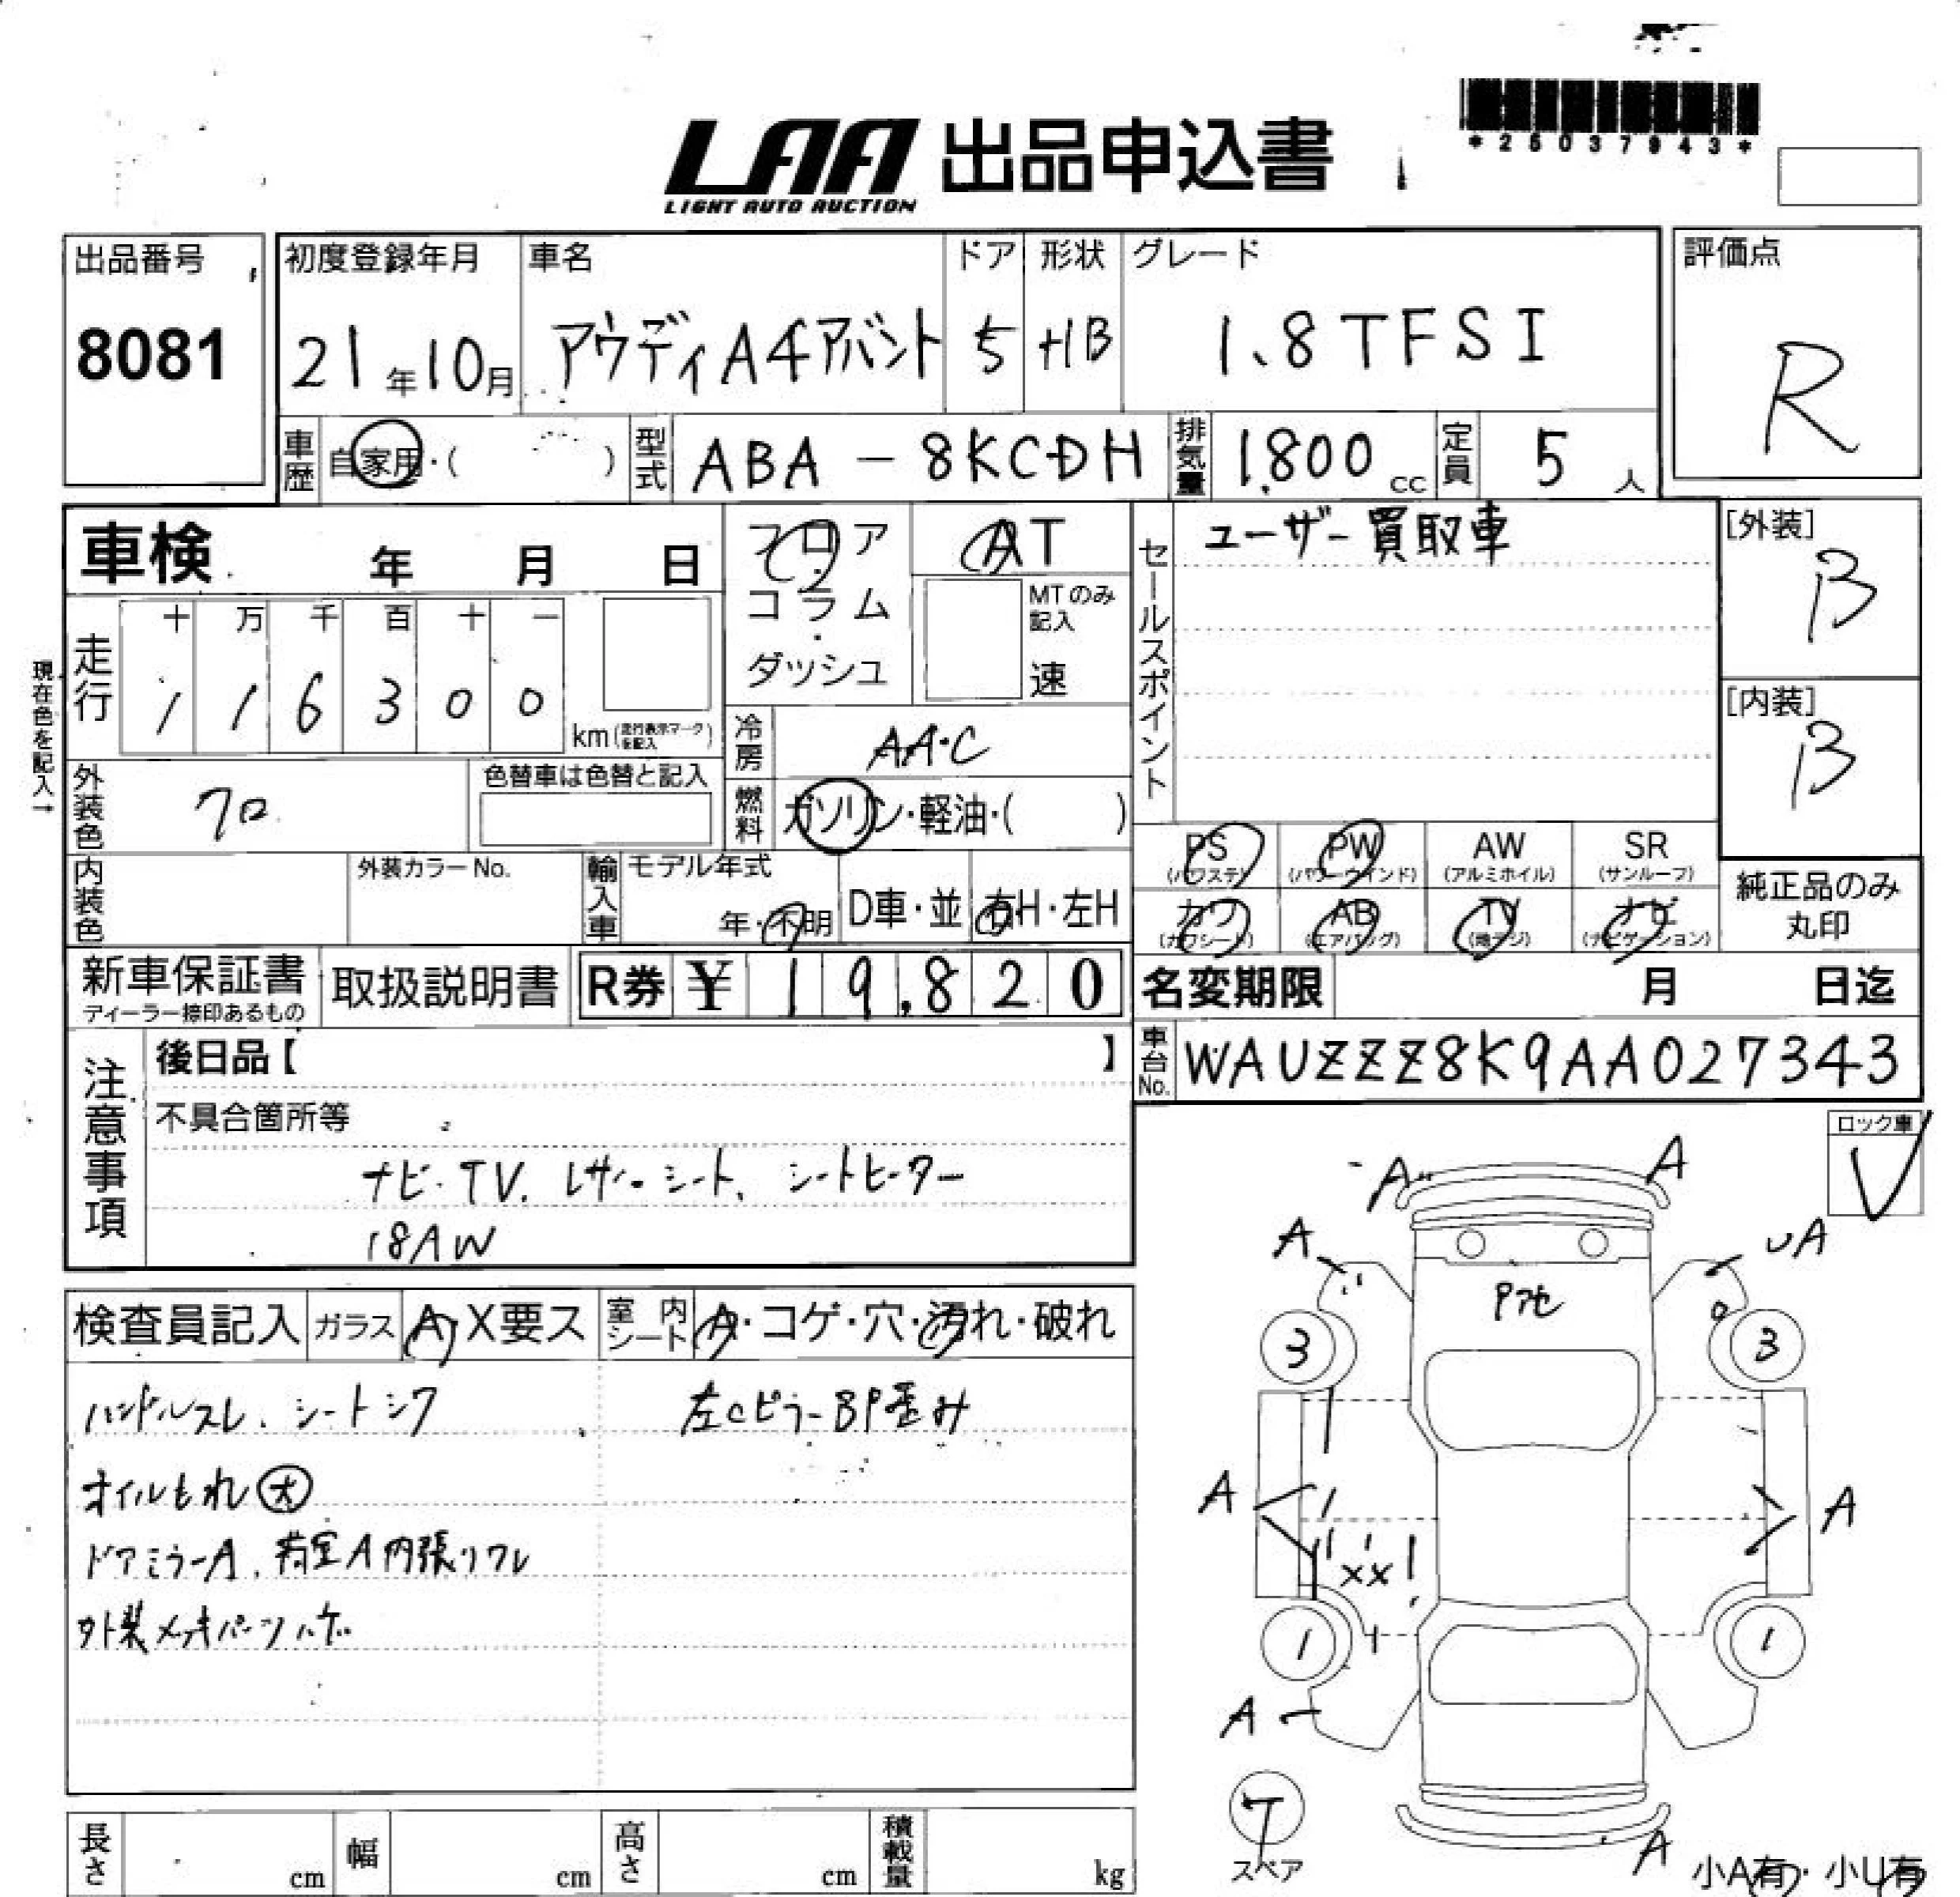 LAA 出品申込書
LIGHT AUTO AUCTION
*25037943*
出品番号
8081
初度登録年月
21年10月
車名
アウディA4アバント
ドア
5
形状
HB
グレード
1.8TFSI
評価点
R
車歴
自家用・( )
型式
ABA-8KCDH
排気量
1,800 cc
定員
5 人
車検 年 月 日
現在色を記入→
走行
十 万 千 百 十 一
1 1 6 3 0 0 km (走行表示マークを記入)
フロア・コラム・ダッシュ
AT
MTのみ記入
速
冷房
AA・C
燃料
ガソリン・軽油・( )
セールスポイント
ユーザー買取車
[外装]
B
[内装]
B
外装色
クロ
色替車は色替と記入
内装色
外装カラーNo.
輸入車
モデル年式
年・不明
D車・並
右H・左H
PS (パワステ)
PW (パワーウインド)
AW (アルミホイル)
SR (サンルーフ)
カワ (カワシート)
AB (エアバッグ)
TV (地デジ)
ナビ (ナビゲーション)
純正品のみ丸印
新車保証書
ディーラー捺印あるもの
取扱説明書
R券 ¥ 19,820
名変期限 月 日迄
車台No.
WAUZZZ8K9AA027343
注意事項
後日品【 】
不具合箇所等
ナビ・TV、レザーシート、シートヒーター
18AW
ロック車
検査員記入
ガラス
A・X要ス
室内シート
A・コゲ・穴・汚れ・破れ
ハンドルスレ、シートシワ
左CピラーBP歪み
オイルもれ 大
ドアミラーA、荷室A内張りワレ
外装メッキパーツハゲ
A A
A UA
P
3 3
A A
XX
1 1
A
T
スペア
A
小A有・小U有
長さ cm
幅 cm
高さ cm
積載量 kg